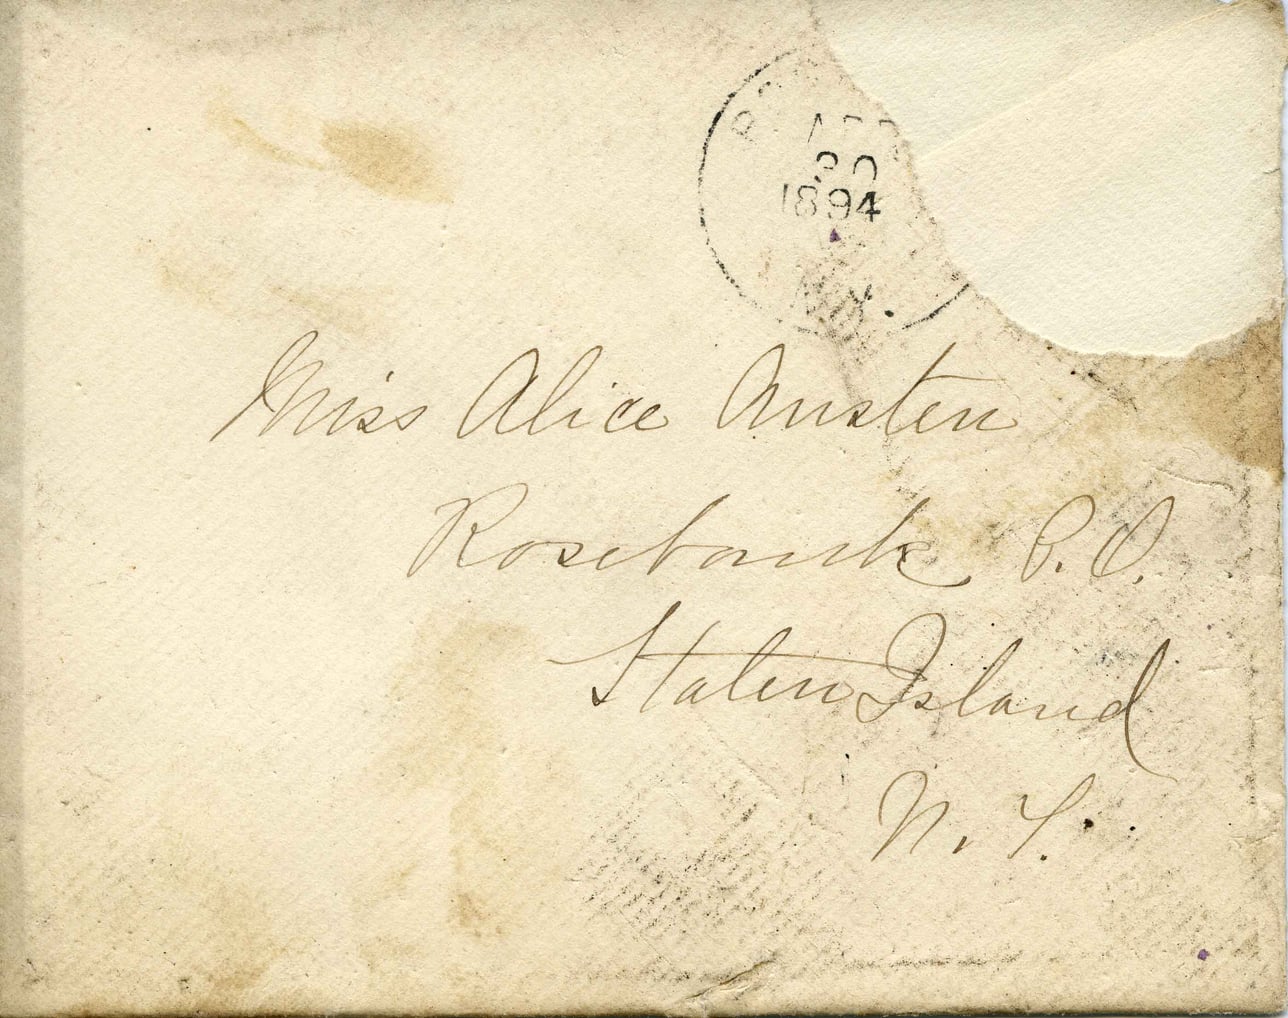 APR
30
1894
N.Y.
Miss Alice Austen
Rosebank P.O.
Staten Island
N.Y.